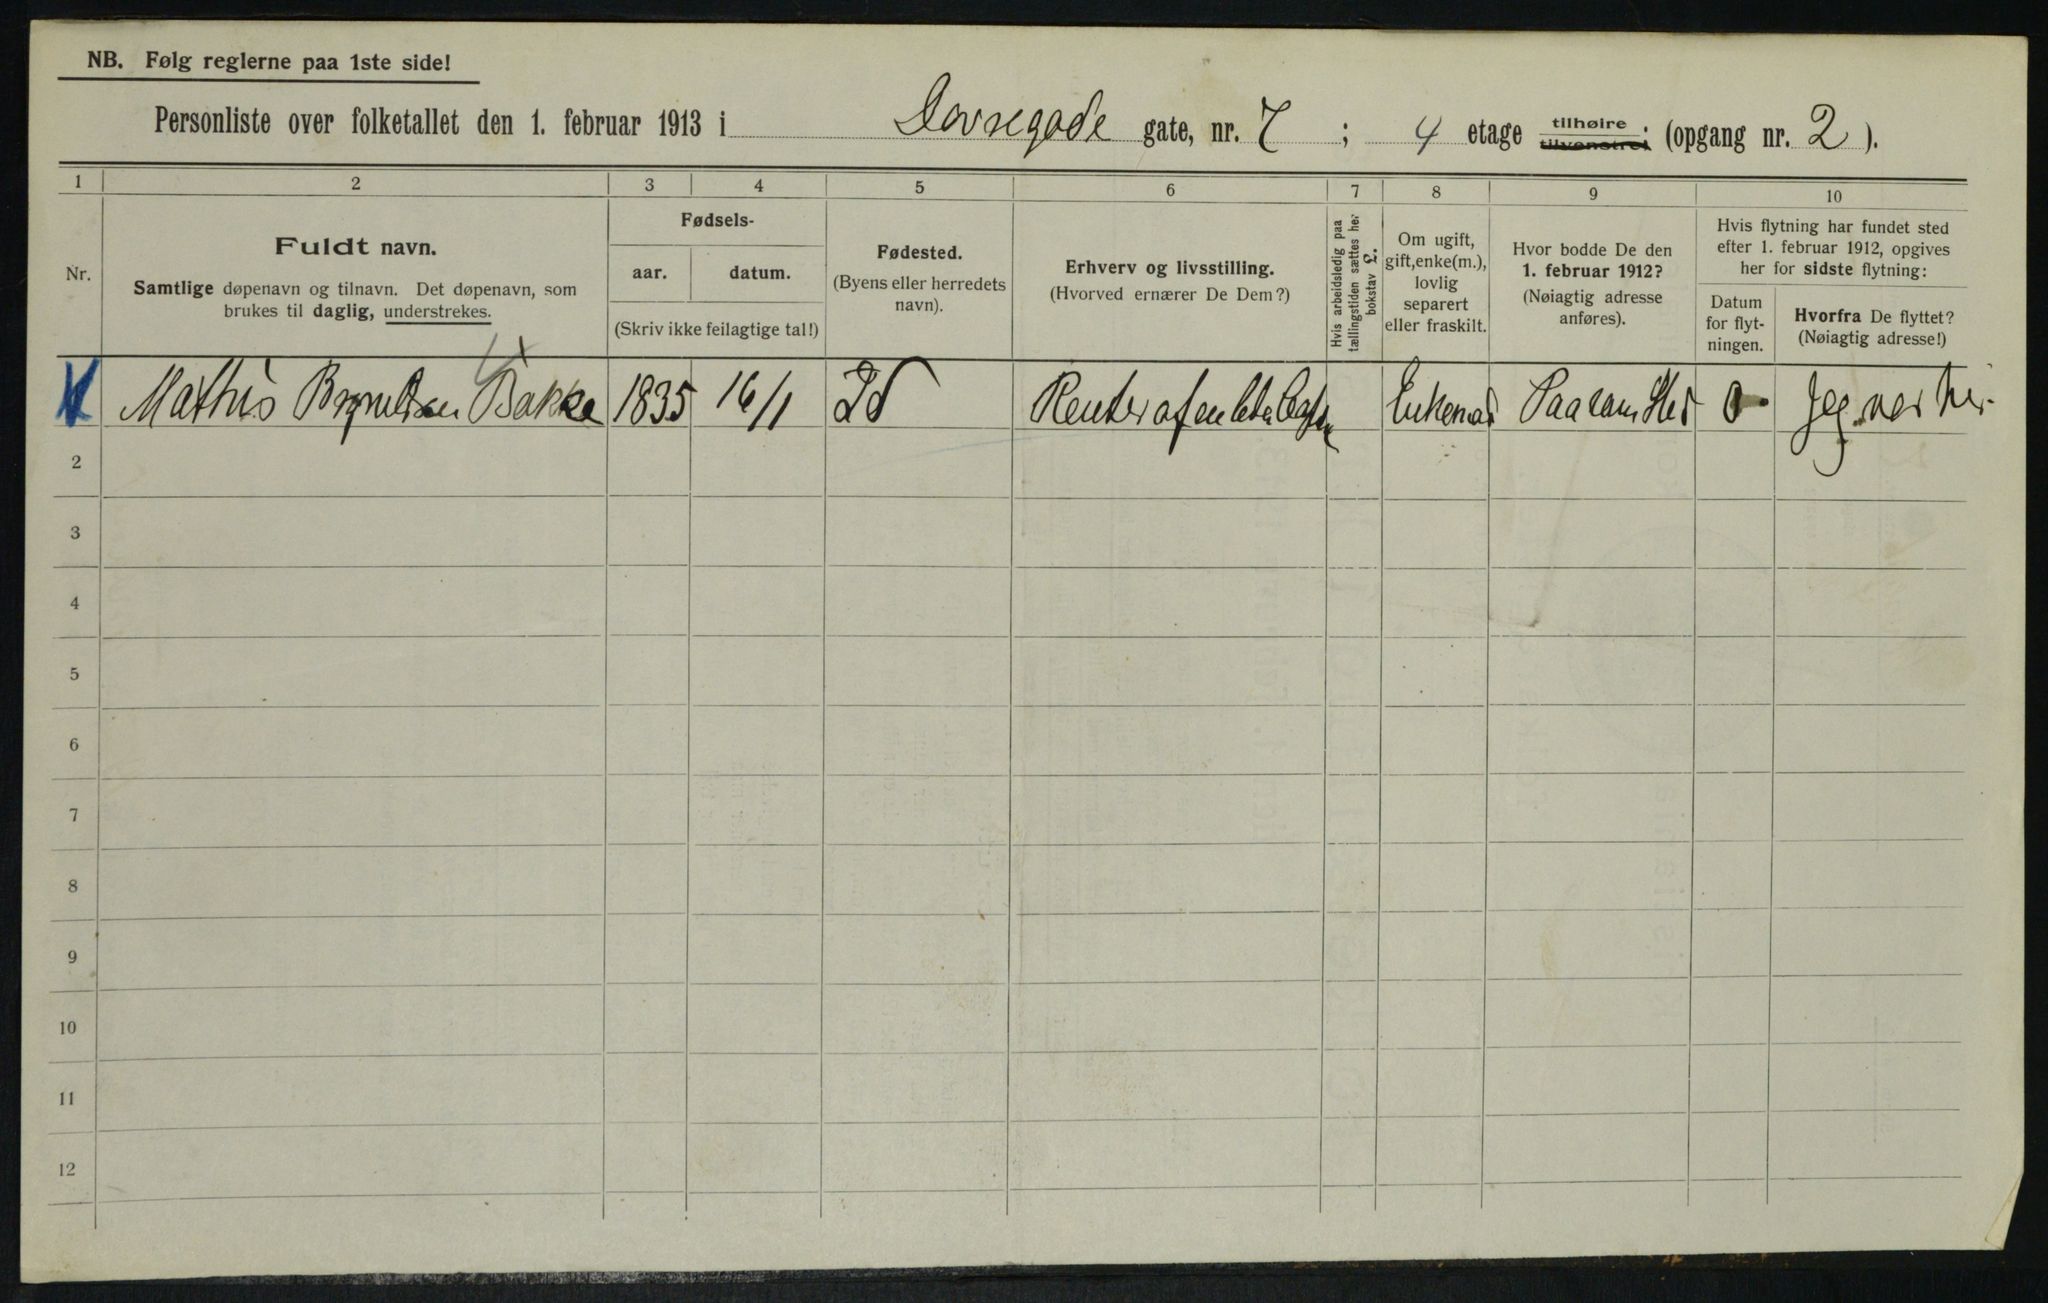 NB. Følg reglerne paa 1ste side!
Personliste over folketallet den 1. februar 1913 i Dovregade gate, nr. 7 ; 4 etage tilhøire tilvenstre; (opgang nr. 2 ).
1 2 3 4 5 6 7 8 9 10
Nr.
Fuldt navn.
Samtlige døpenavn og tilnavn. Det døpenavn, som
brukes til daglig, understrekes.
Fødsels-
aar. datum.
(Skriv ikke feilagtige tal!)
Fødested.
(Byens eller herredets
navn).
Erhverv og livsstilling.
(Hvorved ernærer De Dem?)
Hvis arbeidsledig paa
tællingstiden sættes her
bokstav L.
Om ugift,
gift, enke(m.),
lovlig
separert
eller fraskilt.
Hvor bodde De den
1. februar 1912?
(Nøiagtig adresse
anføres).
Hvis flytning har fundet sted
efter 1. februar 1912, opgives
her for sidste flytning:
Datum
for flyt-
ningen.
Hvorfra De flyttet?
(Nøiagtig adresse!)
1 Mathis Bakke 1835 16/1 Id Renter af en liten Enkemand Paa sam Sted 0 Jeg var her
2
3
4
5
6
7
8
9
10
11
12